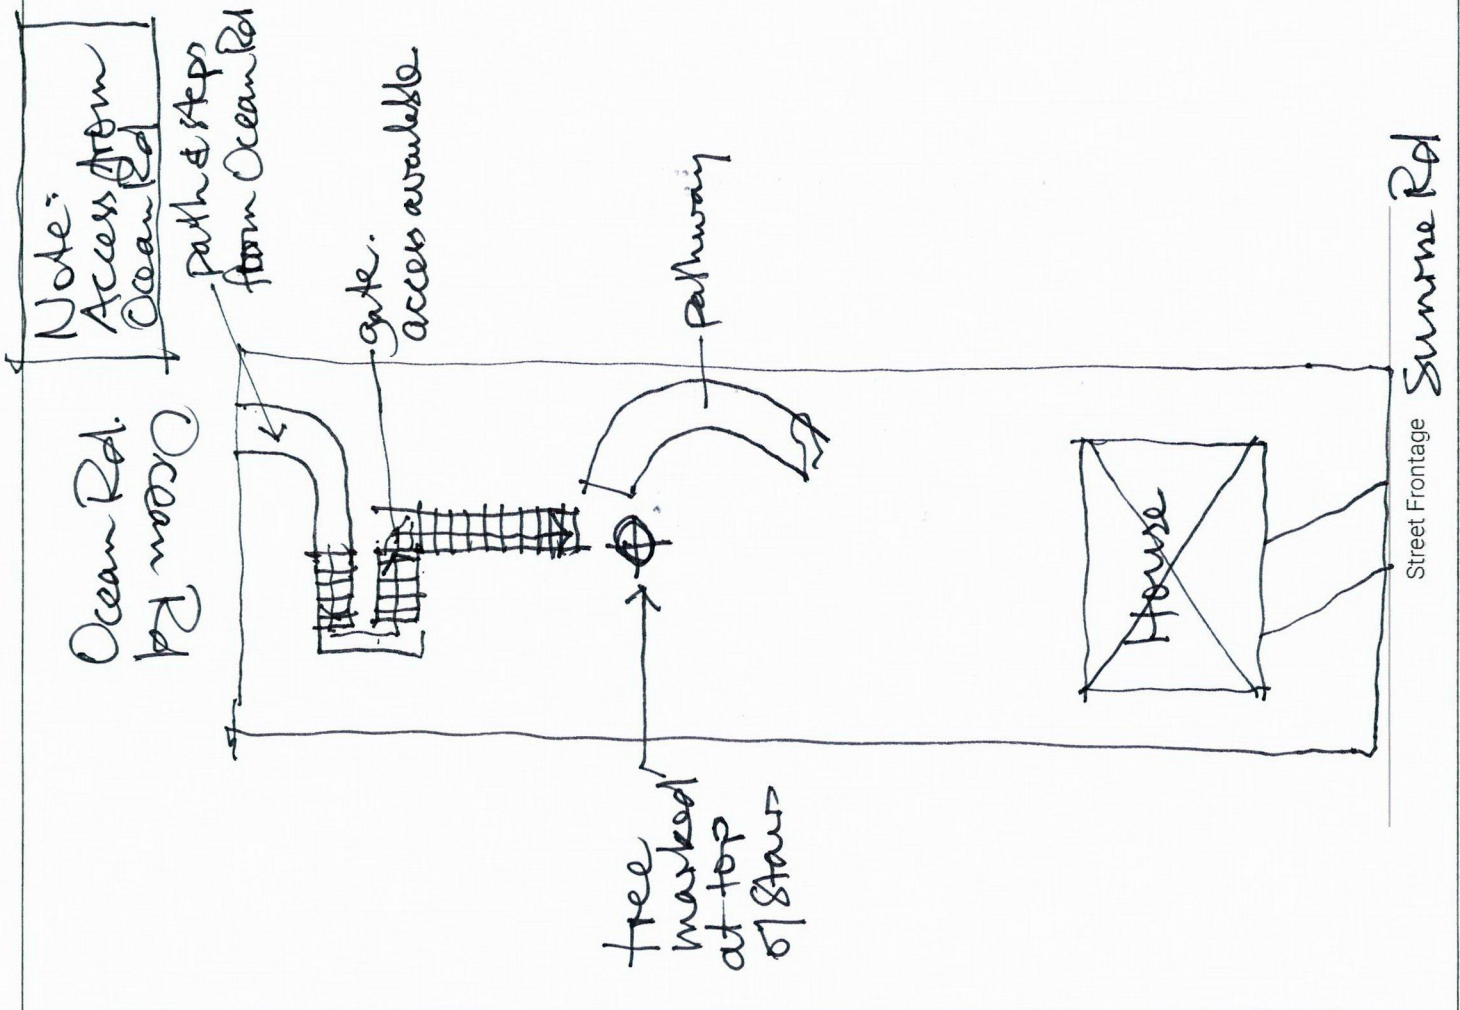 Note:
Access from
Ocean Rd
path & steps
from Ocean Rd
Ocean Rd.
Ocean Rd
gate.
access available
pathway
tree
marked
at top
of stairs
House
Street Frontage
Sunrise Rd